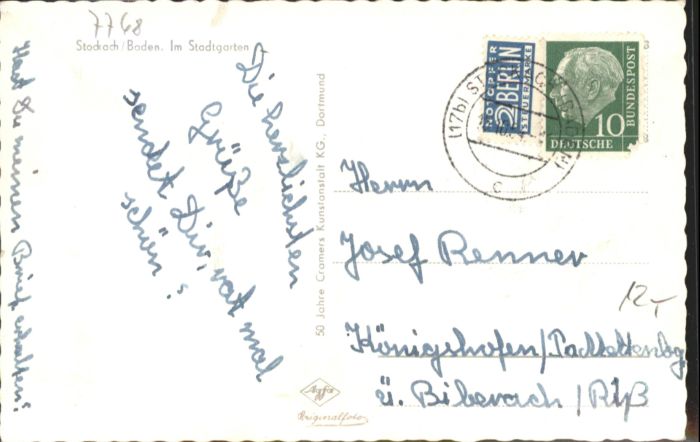 7768
Stockach/Baden. Im Stadtgarten
Die herzlichsten
Grüße
sendet Dir, rat mal
schön?
Hast Du meinen Brief erhalten?
50 Jahre Cramers Kunstanstalt KG., Dortmund
Agfa
Originalfoto
NOTOPFER
2 BERLIN
STEUERMARKE
DEUTSCHE
BUNDESPOST
10
(17b) ST
c
Herrn
Josef Renner
12,-
Königshofen/
ü. Biberach/Riß